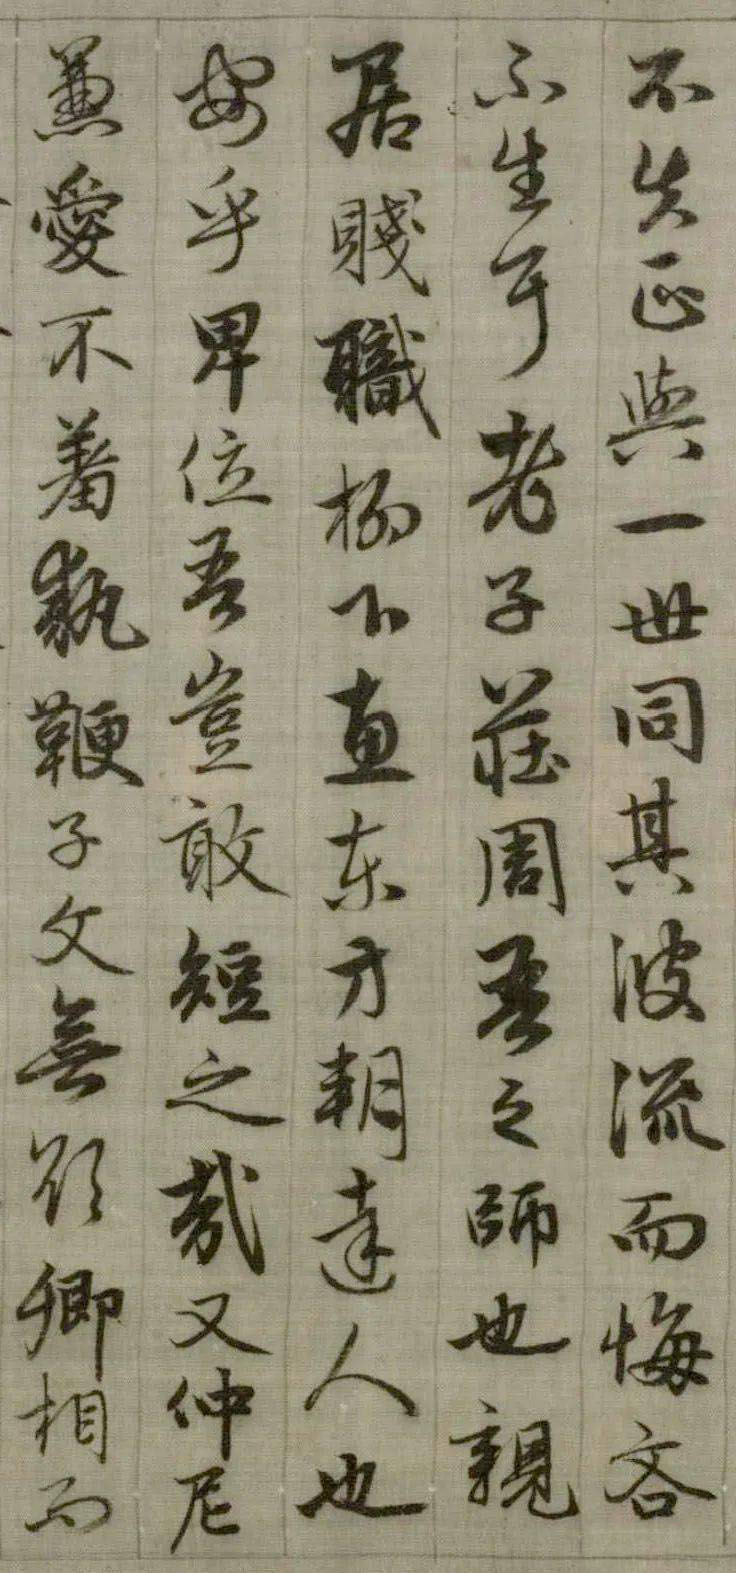 不失正與一世同其波流而悔吝
不生耳老子莊周吾之師也親
居賤職柳下惠東方朝達人也
安乎卑位吾豈敢短之哉又仲尼
兼愛不羞執鞭子文無欲卿相而